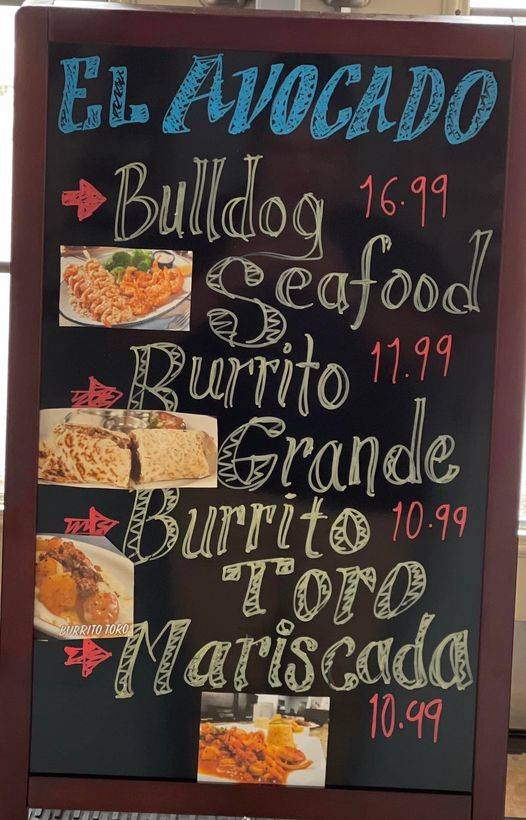 EL AVOCADO
Bulldog 16.99
Seafood
Burrito 11.99
Grande
Burrito 10.99
Toro
BURRITO TORO
Mariscada
10.99